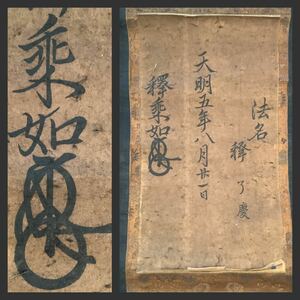 法名
釋了慶
天明五年八月廿一日
釋乘如
乘如